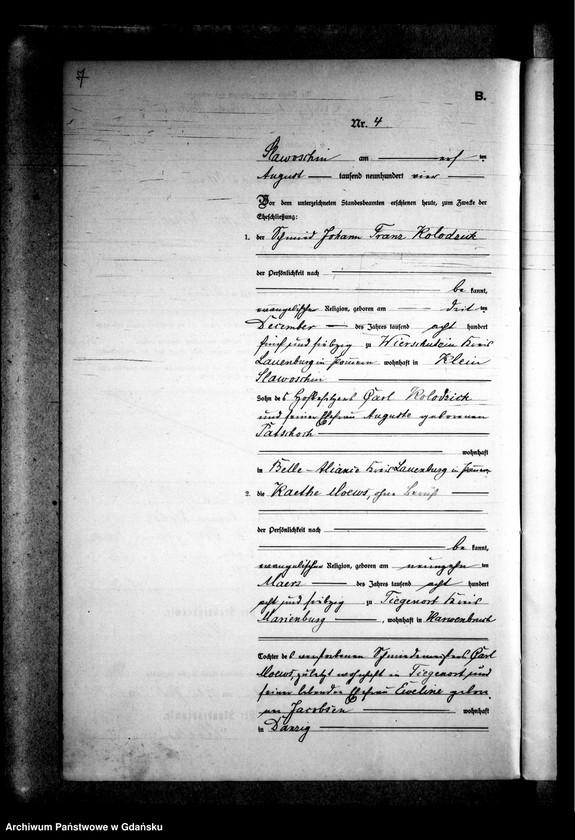 7
B.
Nr. 4
Slawoschin am elf ten
August tausend neunhundert vier
Vor dem unterzeichneten Standesbeamten erschienen heute, zum Zwecke der
Eheschließung:
1. der Schmied Johann Franz Kolodzick
der Persönlichkeit nach
be kannt,
evangelischer Religion, geboren am drit ten
December des Jahres tausend acht hundert
fünf und siebzig zu Wierschutzin Kreis
Lauenburg in Pommern wohnhaft in Klein
Slawoschin
Sohn des Hofbesitzers Carl Kolodzick
und seiner Ehefrau Auguste geborenen
Patschoch
wohnhaft
in Belle-Aliance Kreis Lauenburg in Pommern
2. die Kaethe Moews, ohne Beruf
der Persönlichkeit nach
be kannt,
evangelischer Religion, geboren am neunzehn ten
Maerz des Jahres tausend acht hundert
acht und siebzig zu Tiegenort Kreis
Marienburg, wohnhaft in Karwenbruch
Tochter des verstorbenen Schmiedemeisters Carl
Moews, zuletzt wohnhaft in Tiegenort und
seiner lebenden Ehefrau Eveline gebore-
nen Jacobsen wohnhaft
in Danzig
Archiwum Państwowe w Gdańsku